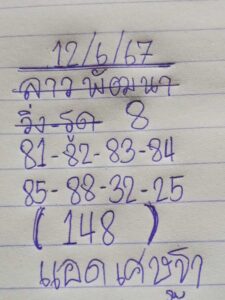 12/6/67
ลาว พัฒนา
วิ่ง-รูด 8
81-82-83-84
85-88-32-25
( 148 )
แอดเศษฐา